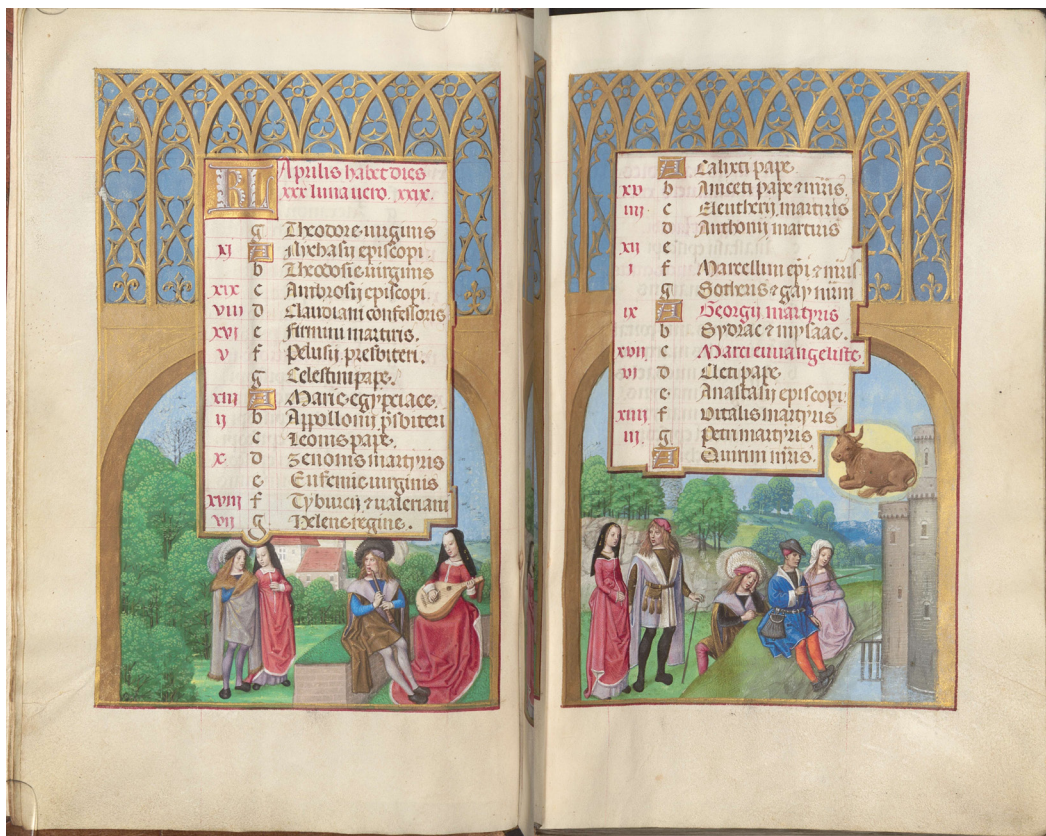 KL Aprilis habet dies
xxx luna vero. xxix.
g Theodore virginis
xj A Nichasij episcopi
b Theodosie virginis
xix c Ambrosij episcopi.
viij d Claudiani confessoris
xvj e Firmini martiris.
v f Pelusij presbiteri.
g Celestini pape.
xiij A Marie egypciace.
ij b Appollonij prsbiteri
c Leonis pape.
x d Zenonis martyris
e Eufemie virginis
xviij f Tyburcij et valeriani
vij g Helene regine.
A Calixti pape.
xv b Aniceti pape et mris.
iiij c Eleutherij martiris
d Anthonij martiris
xij e
j f Marcellini epi et mris
g Sotheris et gay mrm
ix A Georgij martyris
b Sydrac et mysaac.
xvij c Marci euuangeliste.
vj d Cleti pape.
e Anastasij episcopi
xiiij f Vitalis martyris
iij g Petri martyris
A Quirini mris.